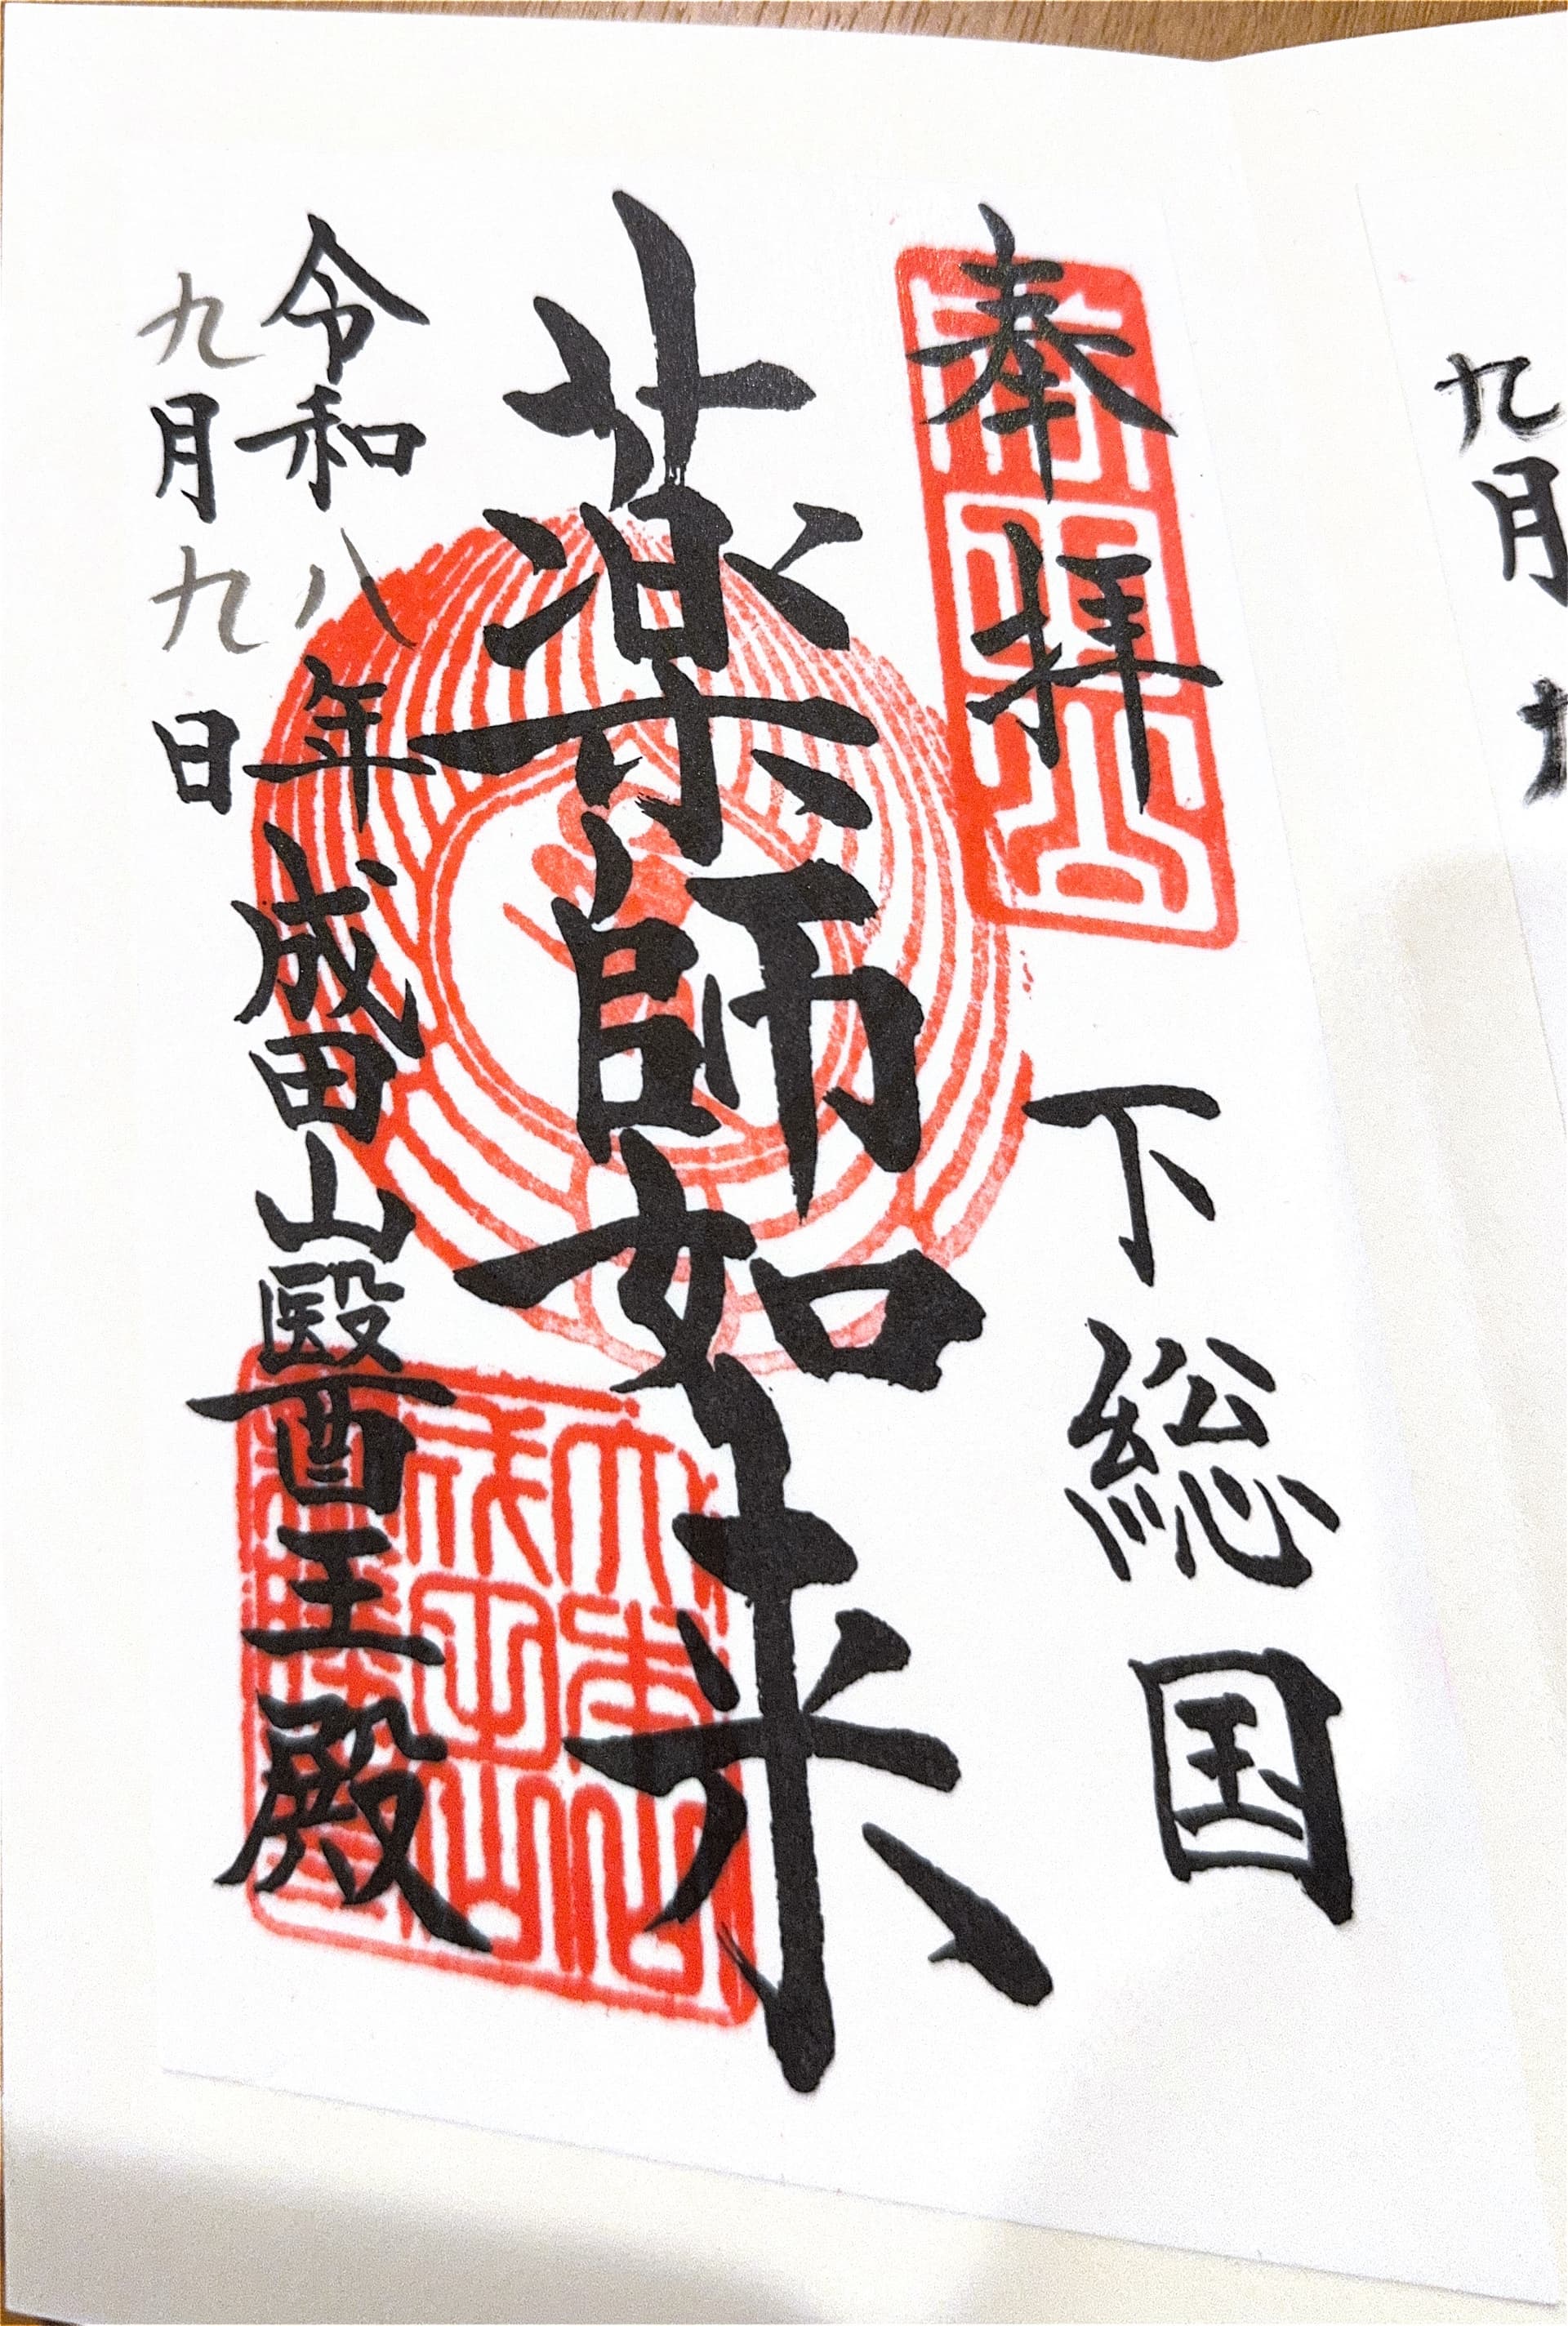 奉拝 下総国
薬師如来
令和八年 成田山醫王殿
九月九日
九月